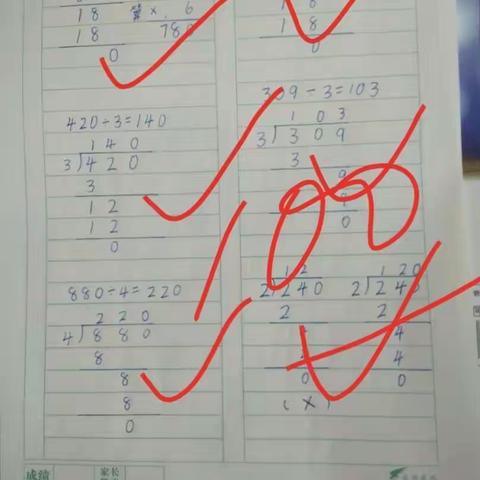 18
18
0
答 × 6
780
18
0
420÷3=140
140
3√420
3
12
12
0
309÷3=103
103
3√309
3
9
0
880÷4=220
220
4√880
8
8
8
0
12
2√240
2
0
(×)
120
2√240
2
4
4
0
成绩
家长